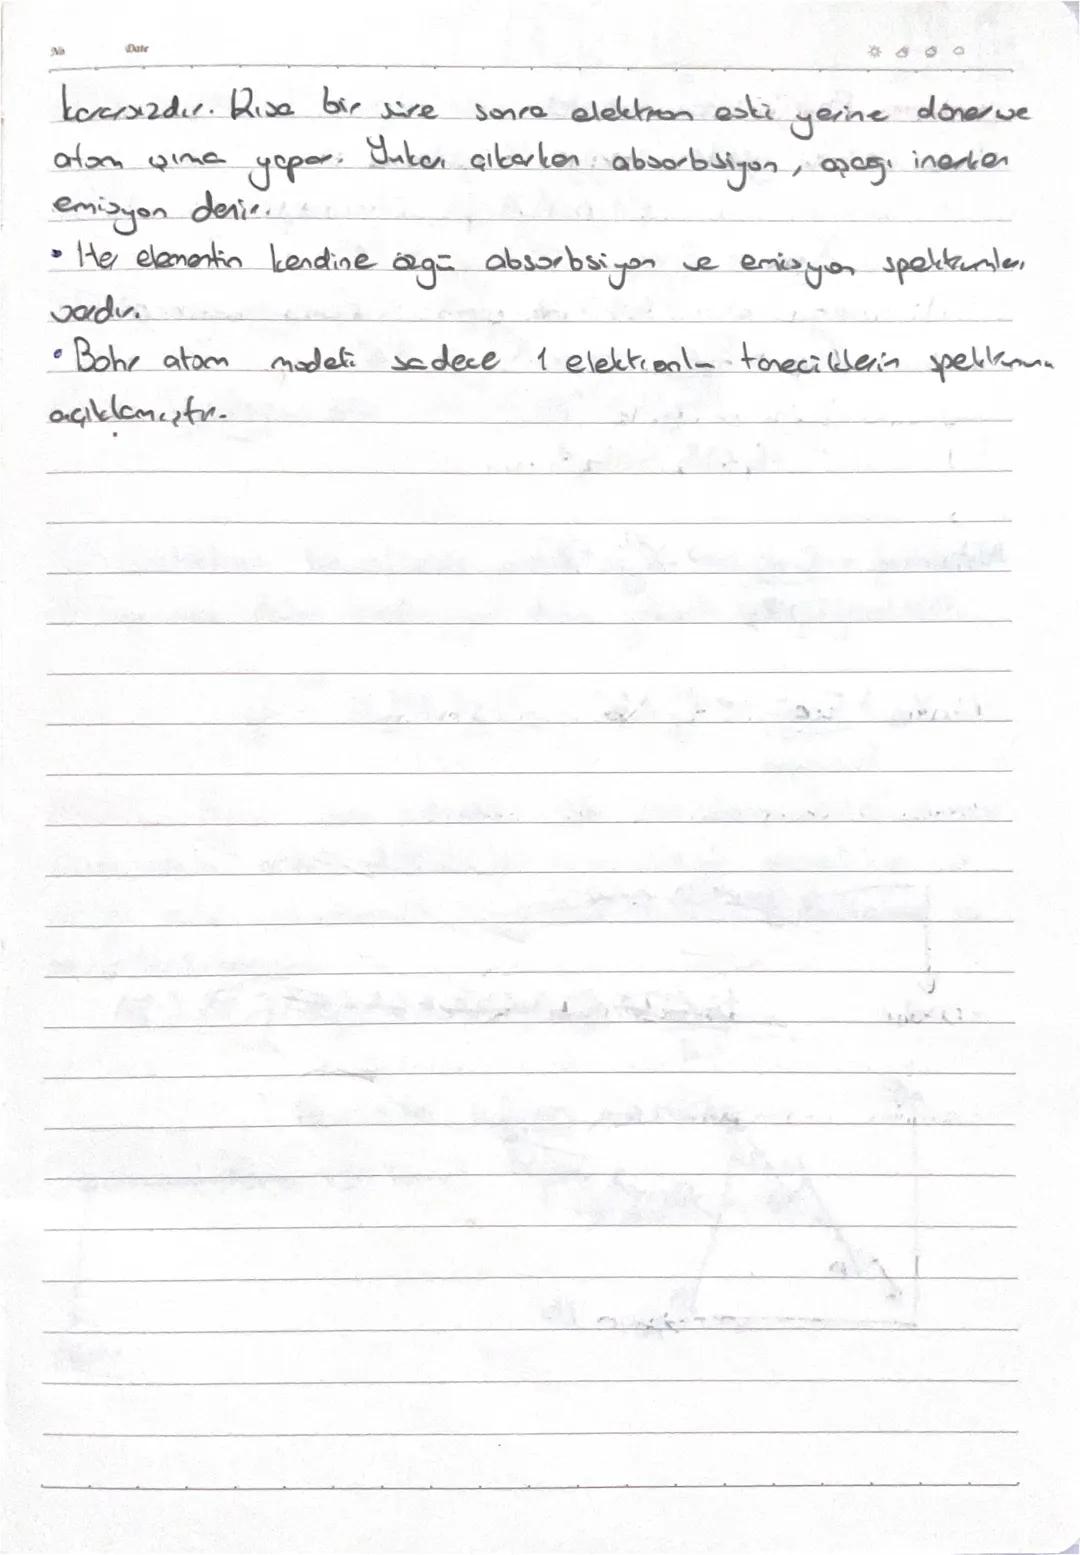 No Date
kararsızdır. Kısa bir süre sonra elektron eski yerine döner ve
atom ışıma yapar. Yukarı çıkarken absorbsiyon, aşağı inerken
emisyon denir.
• Her elementin kendine özgü absorbsiyon ve emisyon spektrumları
vardır.
• Bohr atom modeli sadece 1 elektronlu taneciklerin spektrumunu
açıklamıştır.